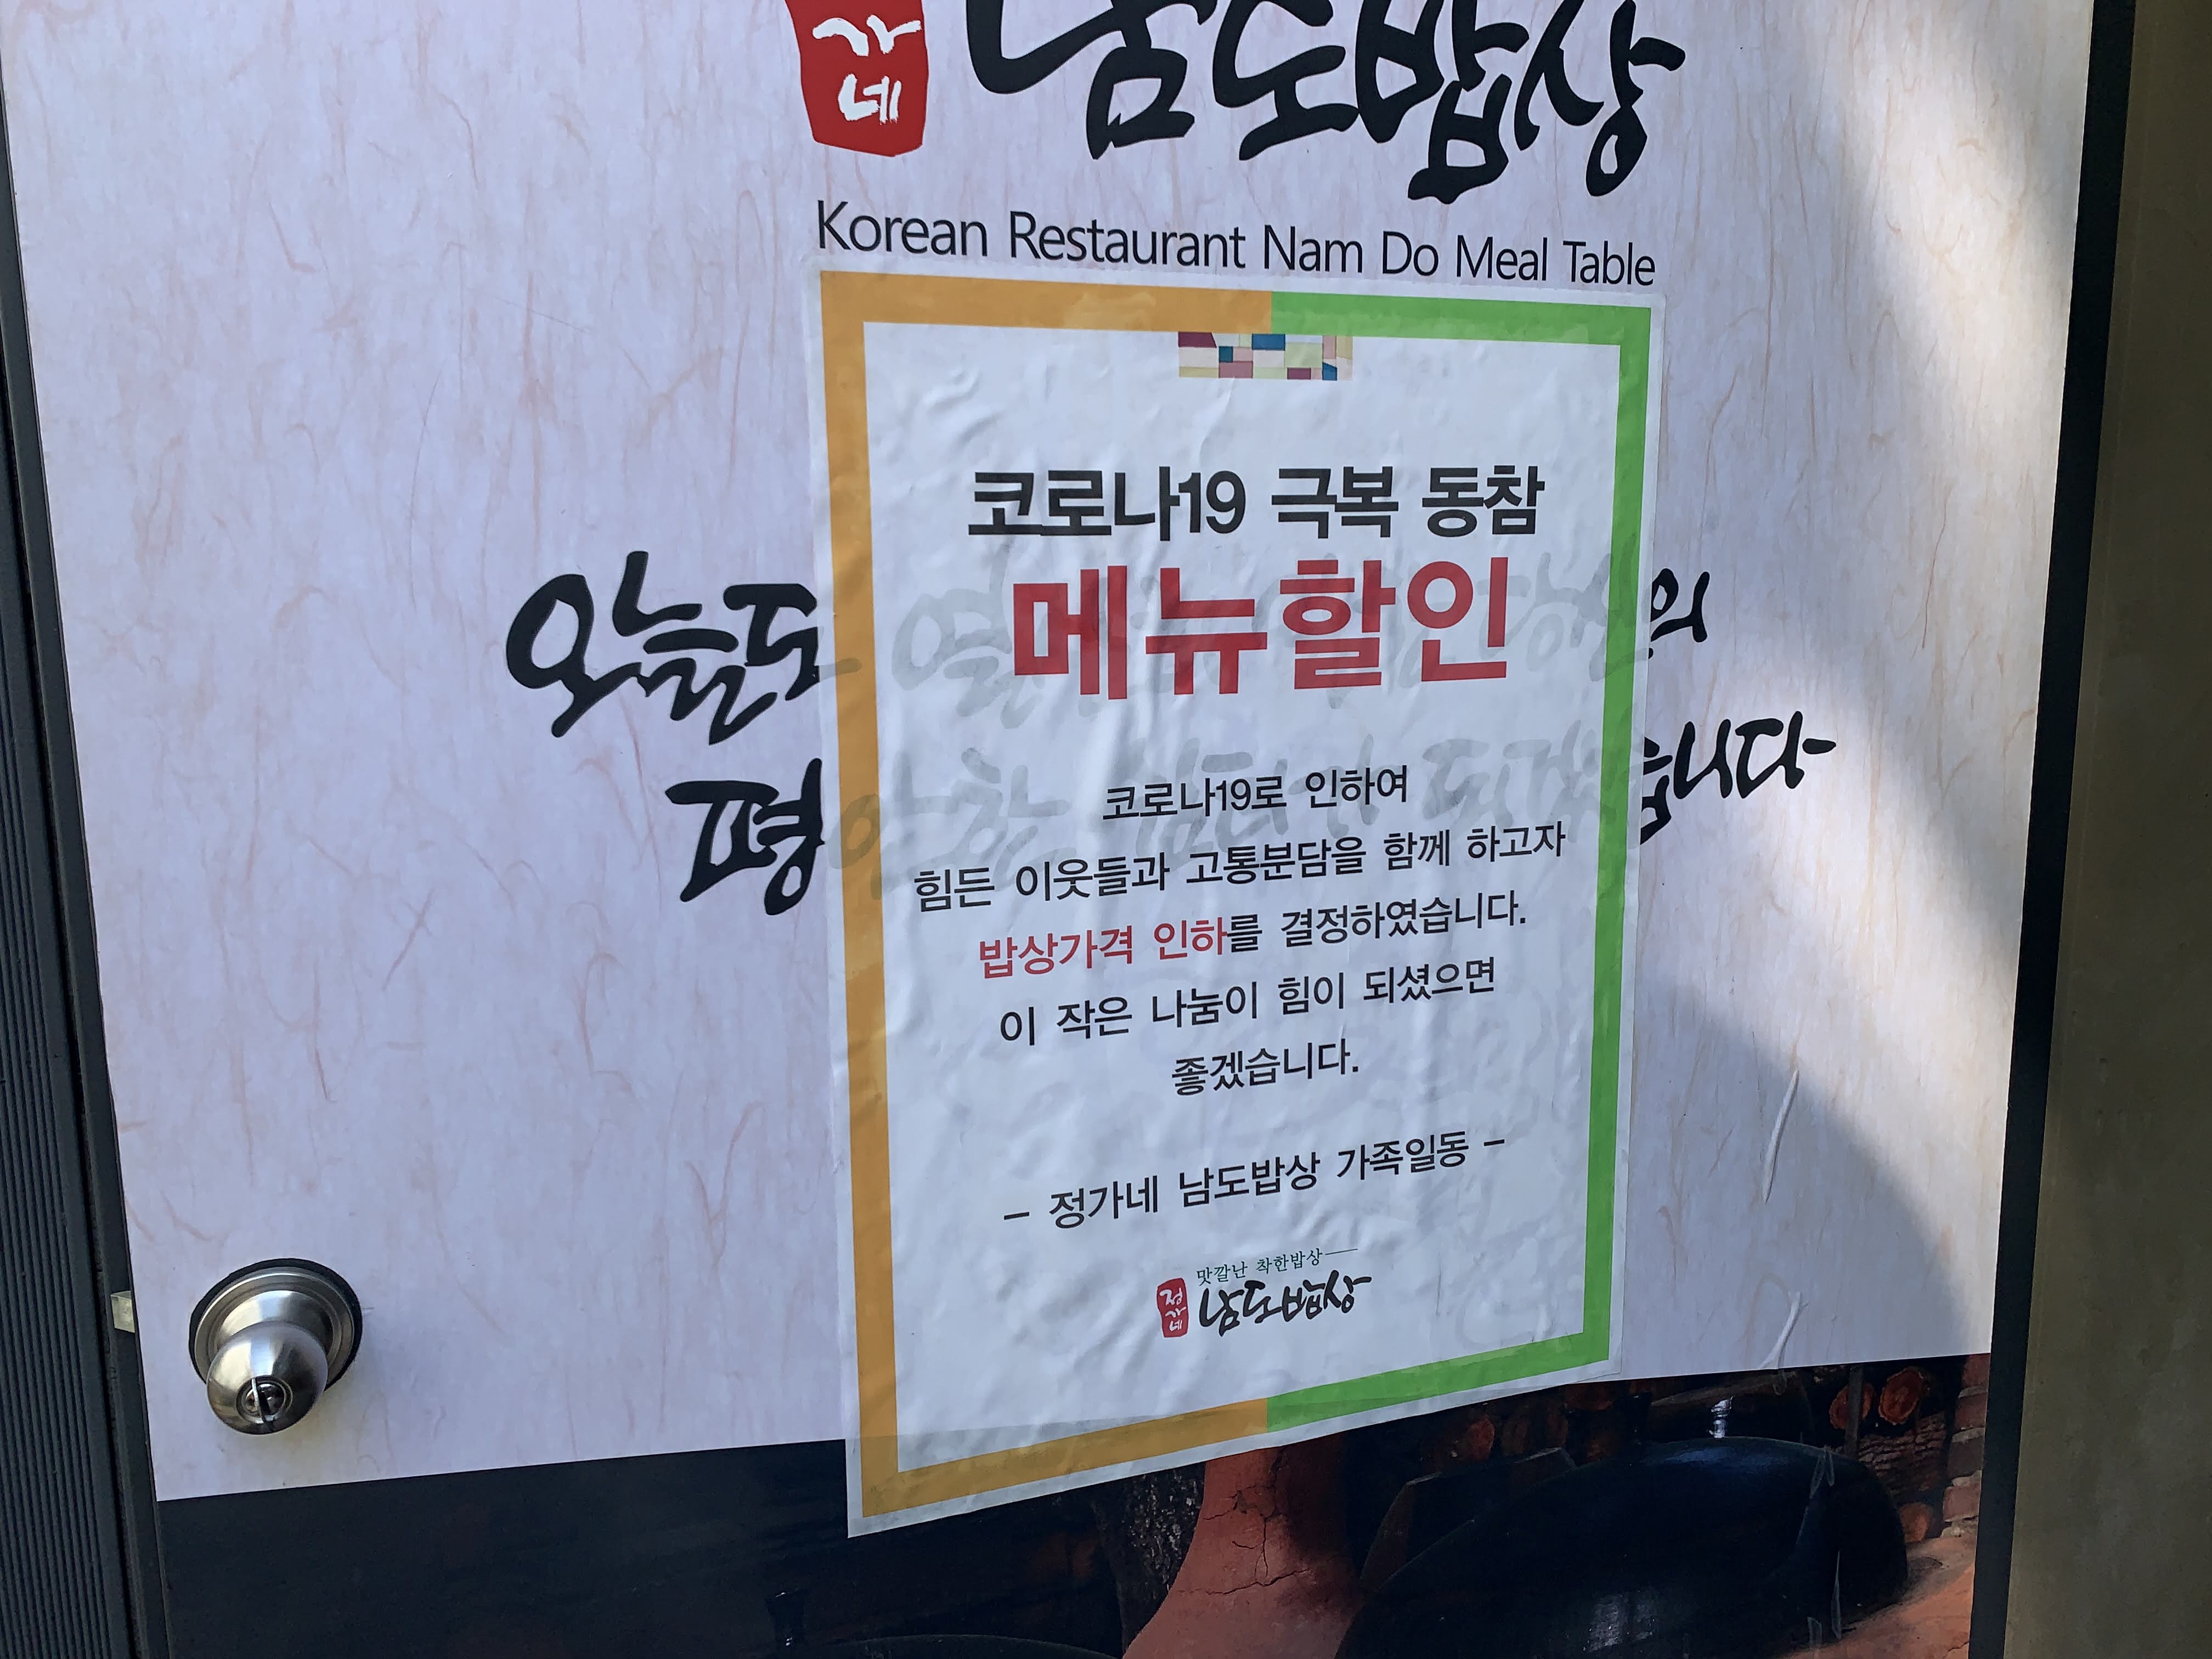 가네 남도밥상
Korean Restaurant Nam Do Meal Table
코로나19 극복 동참
메뉴할인
오늘도 열 의
평안한 쉼터가 되겠습니다
코로나19로 인하여
힘든 이웃들과 고통분담을 함께 하고자
밥상가격 인하를 결정하였습니다.
이 작은 나눔이 힘이 되셨으면
좋겠습니다.
- 정가네 남도밥상 가족일동 -
맛깔난 착한밥상
정가네 남도밥상